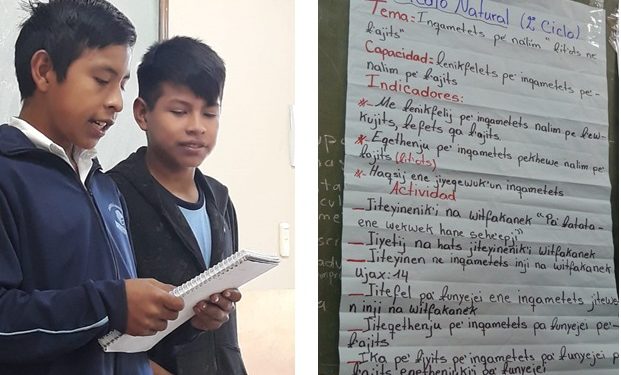 Natural (2º Ciclo)
Tema: Ingametets pe' nalim "łitots ne
łajits"
Capacidad: Łenikfelets pe' ingametets pe'-
nalim pe' łajits
Indicadores:
* Me łenikfelij pe' ingametets nalim pe łew-
kujits, łefets ga łajits.
* Egethenju pe' ingametets pekhewe nalim pe'
łajits (łitots)
* Haqsij ene jiyeqewuk'un ingametets
Actividad
_ Jiteyinenik'i na witfakanek "Pa' łatata-
ene wekwek hane sehe'epji"
_ Jiyetij na hats jiteyinenik'i witfakanek
_ Jiteyinen ne ingametets inji na witfakanek
Ujax: 14
_ Jitefel pa' łunyejei ene ingametets jitews-
n inji na witfakanek
_ Jiteqethenju pe' ingametets pa łunyejei pe'-
łajits
_ Ika pe' łiyits pe' ingametets pa' łunyejei p
łajits
pa' łunyejei